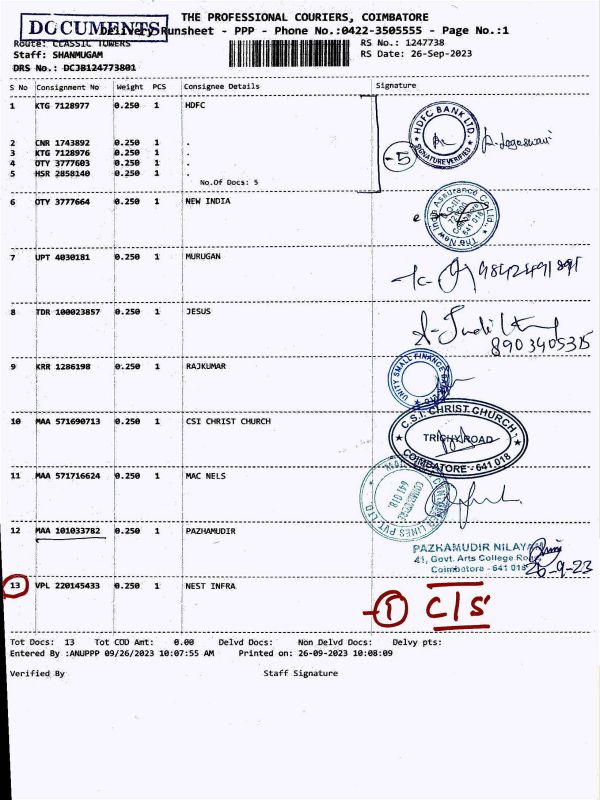 THE PROFESSIONAL COURIERS, COIMBATORE
DOCUMENTS
Delivery Runsheet - PPP - Phone No.:0422-3505555 - Page No.:1
Route: CLASSIC TOWERS RS No.: 1247738
Staff: SHANMUGAM RS Date: 26-Sep-2023
DRS No.: DCJB124773801
S No Consignment No Weight PCS Consignee Details Signature
1 KTG 7128977 0.250 1 HDFC
HDFC BANK LTD.
SIGNATURE VERIFIED
2 CNR 1743892 0.250 1 .
3 KTG 7128976 0.250 1 .
4 OTY 3777603 0.250 1 .
-5
5 HSR 2858140 0.250 1 .
No.Of Docs: 5
6 OTY 3777664 0.250 1 NEW INDIA
The New India Assurance Co. Ltd.
641 018
7 UPT 4030181 0.250 1 MURUGAN
8 TDR 100023857 0.250 1 JESUS
8903405315
9 KRR 1286198 0.250 1 RAJKUMAR
UNITY SMALL FINANCE
10 MAA 571690713 0.250 1 CSI CHRIST CHURCH
C.S.I. CHRIST CHURCH
TRICHY ROAD
COIMBATORE - 641 018
11 MAA 571716624 0.250 1 MAC NELS
LINES PVT. LTD.
COIMBATORE
641 018.
12 MAA 101033782 0.250 1 PAZHAMUDIR
PAZHAMUDIR NILAYAM
41, Govt. Arts College Road
Coimbatore - 641 018
26-9-23
13 VPL 220145433 0.250 1 NEST INFRA
-1 C/S
Tot Docs: 13 Tot COD Amt: 0.00 Delvd Docs: Non Delvd Docs: Delvy pts:
Entered By :ANUPPP 09/26/2023 10:07:55 AM Printed on: 26-09-2023 10:08:09
Verified By Staff Signature